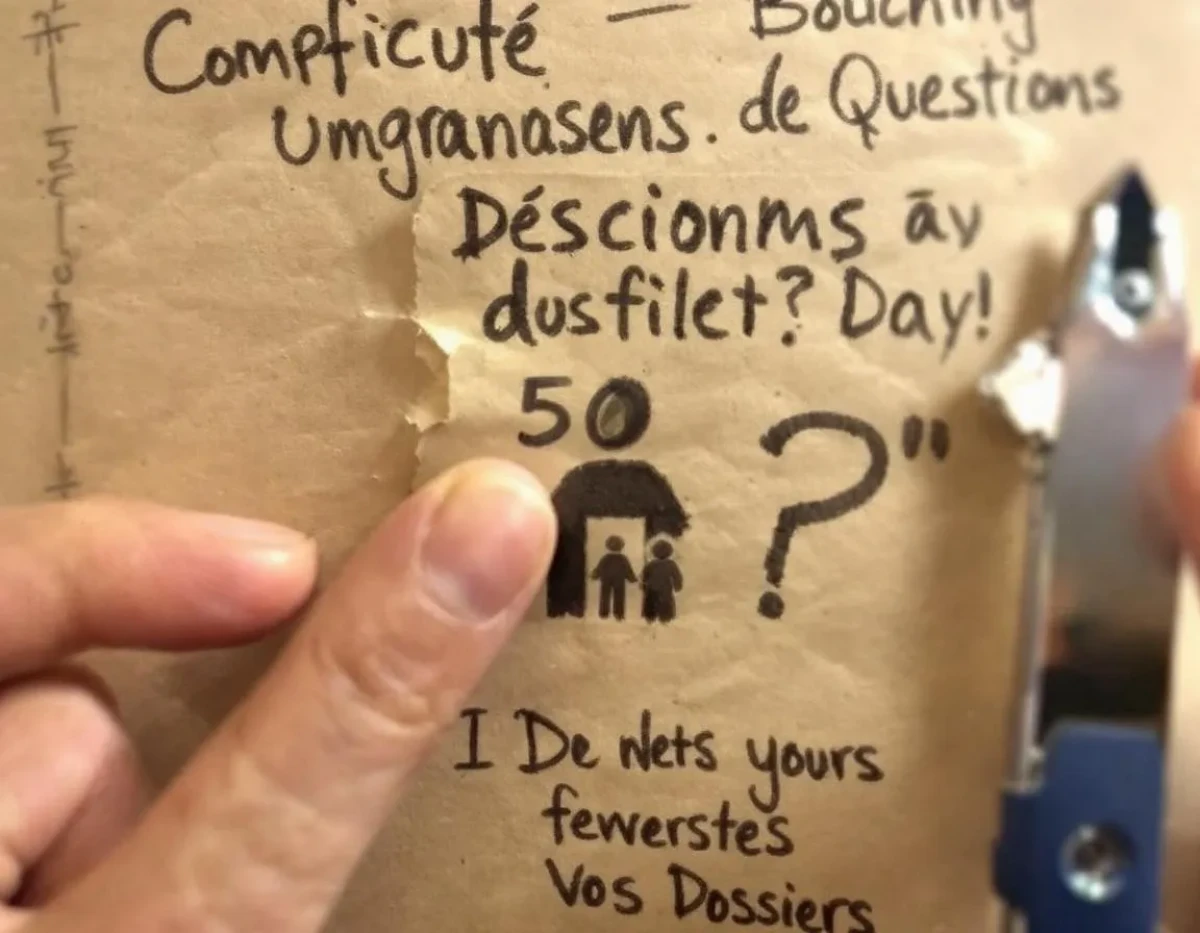 Compficuté — Bouching
umgranasens. de Questions
Déscionms āy
dusfilet? Day!
50
?"
I De Nets yours
fewerstes
Vos Dossiers